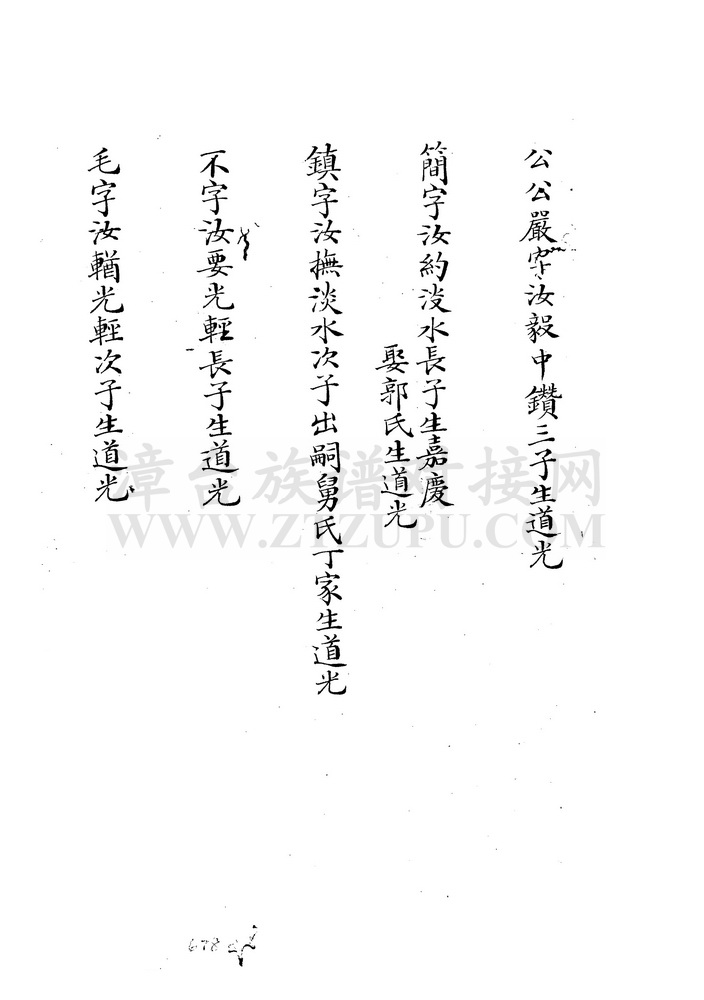 公公嚴字汝毅中鑽三子生道光
簡字汝約淡水長子生嘉慶
娶郭氏生道光
鎮字汝撫淡水次子出嗣舅氏丁家生道光
不字汝要光輕長子生道光
毛字汝輶光輕次子生道光
漳台族谱对接网
WWW.ZTZUPU.COM